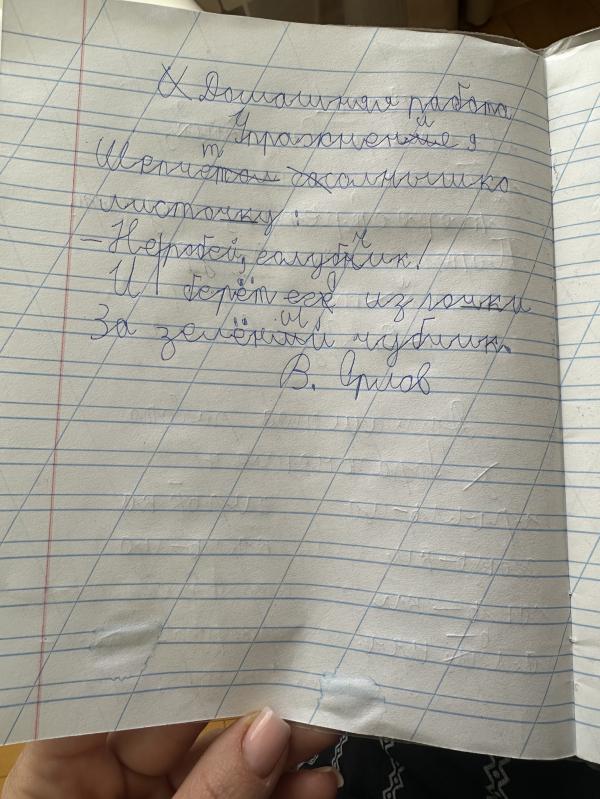 Домашняя работа
Упражнение я
Шепчет солнышко
листочку:
– Не робей, голубчик!
И берёт его из почки
За зелёный чубчик.
В. Орлов